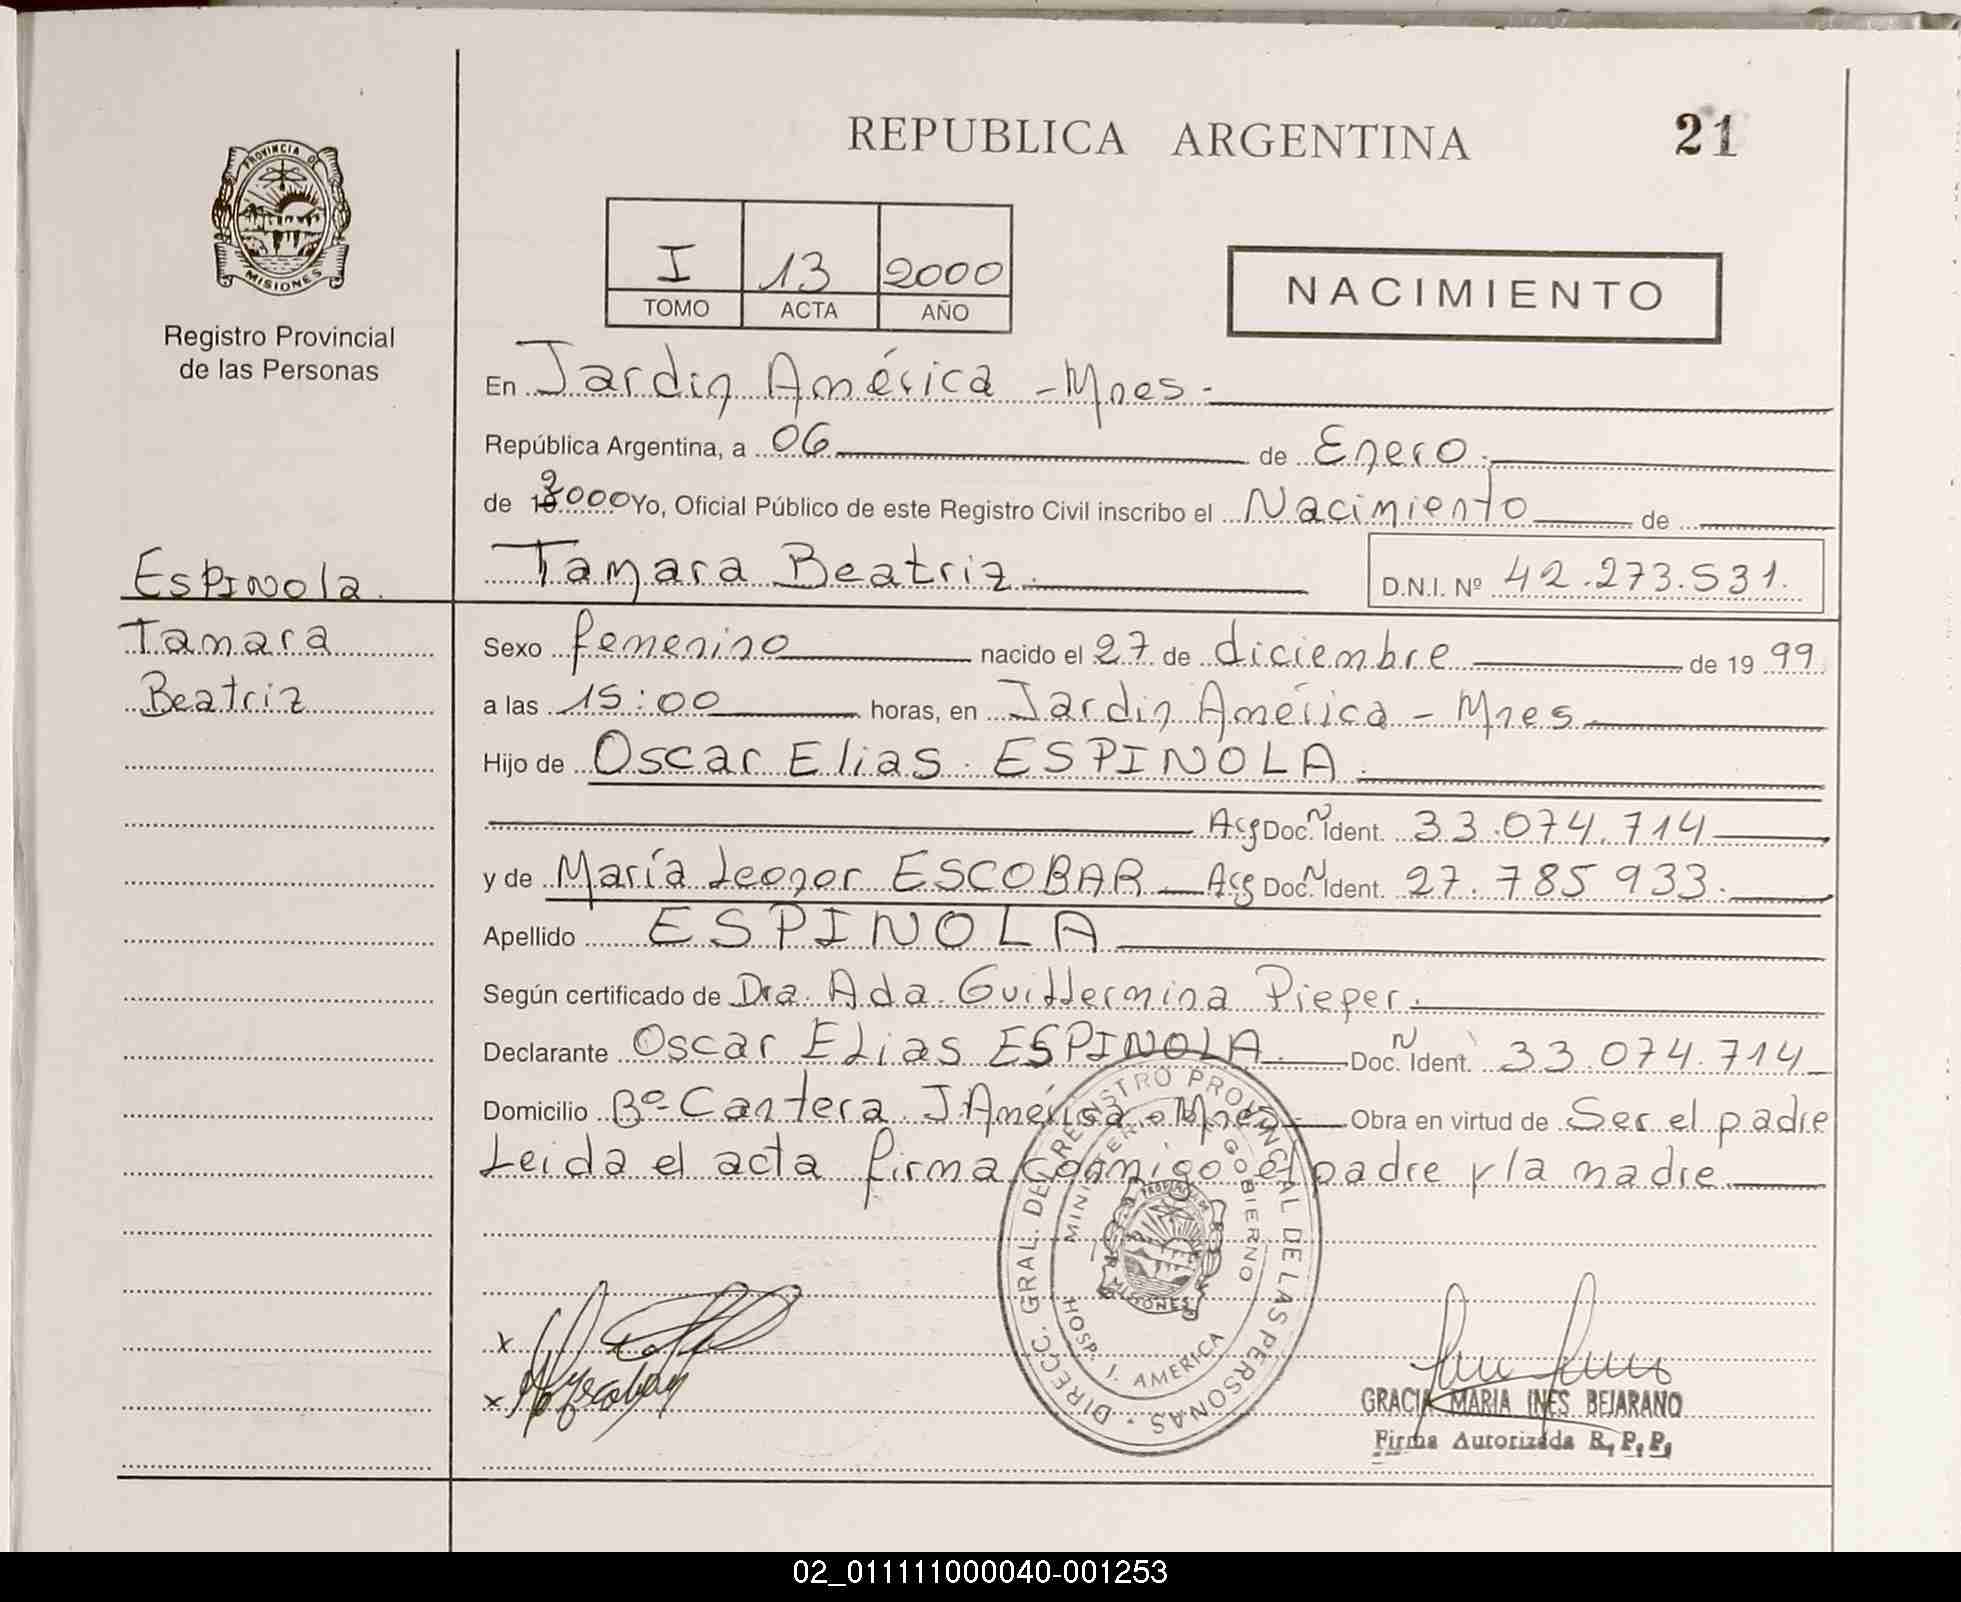 REPUBLICA ARGENTINA
21
PROVINCIA DE
MISIONES
Registro Provincial
de las Personas
I 13 2000
TOMO ACTA AÑO
NACIMIENTO
En Jardin América - Mnes -
República Argentina, a 06 de Enero.
de 2000 Yo, Oficial Público de este Registro Civil inscribo el Nacimiento de
Espinola.
Tamara
Beatriz
Tamara Beatriz.
D.N.I. Nº 42.273.531.
Sexo femenino nacido el 27 de diciembre de 19 99
a las 15:00 horas, en Jardin América - Mnes
Hijo de Oscar Elias ESPINOLA.
Arg Doc. N Ident. 33.074.714
y de María Leonor ESCOBAR Arg Doc. N Ident. 27.785 933.
Apellido ESPINOLA
Según certificado de Dra. Ada Guillermina Pieper.
Declarante Oscar Elias ESPINOLA. Doc. N Ident. 33.074.714
Domicilio Bº Cantera J. América - Mnes - Obra en virtud de Ser el padre
Leida el acta firma conmigo el padre y la madre
DIRECC. GRAL. DEL REGISTRO PROVINCIAL DE LAS PERSONAS
MINISTERIO DE GOBIERNO
PROVINCIA DE
MISIONES
HOSP. J. AMERICA
x
x
GRACIA MARIA INES BEJARANO
Firma Autorizada R. P. P.
02_011111000040-001253